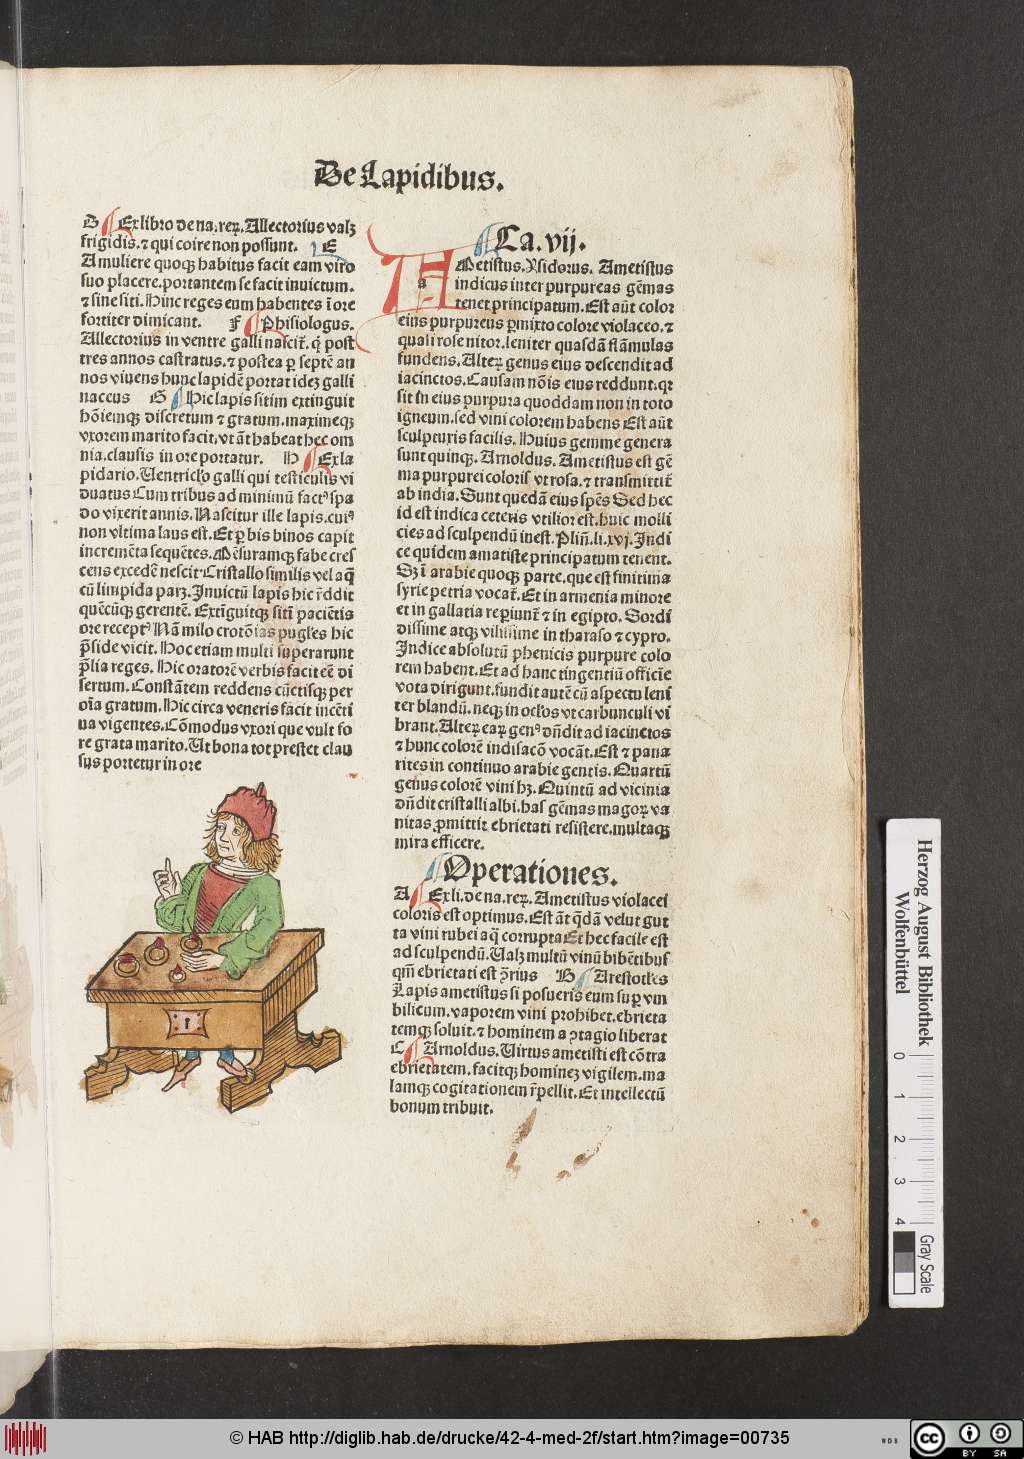 De Lapidibus.
D Ex libro de na. reꝝ. Allectorius valꝫ
frigidis. ⁊ qui coire non possunt. E
A muliere quoqꝫ habitus facit eam viro
suo placere. portantem se facit inuictum.
⁊ sine siti. Hinc reges eum habentes ī ore
fortiter dimicant. F Phisiologus.
Allectorius in ventre galli nascit̄. qͥ post
tres annos castratus. ⁊ postea ꝑ septē an
nos viuens hunc lapidē portat ideꝫ galli
naccus G Hic lapis sitim extinguit
hōiemqꝫ discretum ⁊ gratum. maximeqꝫ
vxorem marito facit. vt āt habeat hec om
nia. clausis in ore portatur. H Ex la
pidario. Uentriclo galli qui testiculis vi
duatus Cum tribus ad minimū factꝰ spa
do vixerit annis. Nascitur ille lapis. cuiꝰ
non vltima laus est. Et ꝑ bis binos capit
incremēta sequētes. Mēsuramqꝫ fabe cres
cens excedē nescit Cristallo similis vel aq̄
cū limpida parꝫ. Inuictū lapis hic r̄ddit
quēcūqꝫ gerentē. Extīguitqꝫ sitī paciētis
ore receptꝰ Nā milo crotōias pugles hic
p̄side vicit. Hoc etiam multi superarunt
p̄lia reges. Hic oratorē verbis facit eē di
sertum. Constātem reddens cūctisqꝫ per
oīa gratum. Hic circa veneris facit incēti
ua vigentes. Cōmodus vxori que vult fo
re grata marito. Ut bona tot prestet clau
sus portetur in ore
Ca. vij.
A a Metistus. Ysidorus. Ametistus
indicus inter purpureas gēmas
tenet principatum. Est aūt color
eius purpureus ꝑmixto colore violaceo. ⁊
quasi rose nitor. leniter quasdā flāmulas
fundens. Alteꝝ genus eius descendit ad
iacinctos. Causam nōis eius reddunt. qꝛ
sit in eius purpura quoddam non in toto
igneum. sed vini colorem habens Est aūt
sculpturis facilis. Huius gemme genera
sunt quinqꝫ. Arnoldus. Ametistus est gē
ma purpurei coloris vt rosa. ⁊ transmittit̄
ab india. Sunt quedā eius sp̄es Sed hec
id est indica ceteris vtilior est. huic molli
cies ad sculpendū inest. Plin̄. li. xvj. Indi
ce quidem amatiste principatum tenent.
Sꝫ ī arabie quoqꝫ parte. que est finitima
syrie petria vocat̄. Et in armenia minore
et in gallatia reꝑiunt̄ ⁊ in egipto. Sordi
dissime atqꝫ vilissime in tharaso ⁊ cypro.
Indice absolutū phenicis purpure colo
rem habent. Et ad hanc tingentiū officīe
vota dirigunt. fundit autē cū aspectu leni
ter blandū. neqꝫ in oclos vt carbunculi vi
brant. Alteꝝ eaꝝ genꝰ dn̄dit ad iacinctos
⁊ hunc colorē indi sacō vocāt. Est ⁊ pana
rites in continuo arabie gentis. Quartū
genus colorē vini hꝫ. Quintū ad vicinia
dn̄dit cristalli albi. has gēmas magoꝝ va
nitas ꝓmittit ebrietati resistere. multaqꝫ
mira efficere.
Operationes.
A Ex li. de na. reꝝ. Ametistus violacei
coloris est optimus. Est āt qͥdā velut gut
ta vini rubei aq̄ corrupta Et hec facile est
ad sculpendū. Ualꝫ multū vinū bibētibus
qm̄ ebrietati est ꝯ̄rius B Arestotles
Lapis ametistus si posueris eum suꝑ vm
bilicum. vaporem vini prohibet. ebrieta
temqꝫ soluit. ⁊ hominem a ꝯtagio liberat
C Arnoldus. Uirtus ametisti est cōtra
ebrietatem. facitqꝫ homineꝫ vigilem. ma
lamqꝫ cogitationem r̄pellit. Et intellectū
bonum tribuit.
Herzog August Bibliothek
Wolfenbüttel
0 1 2 3 4
Gray Scale
© HAB http://diglib.hab.de/drucke/42-4-med-2f/start.htm?image=00735
WDB
cc BY SA